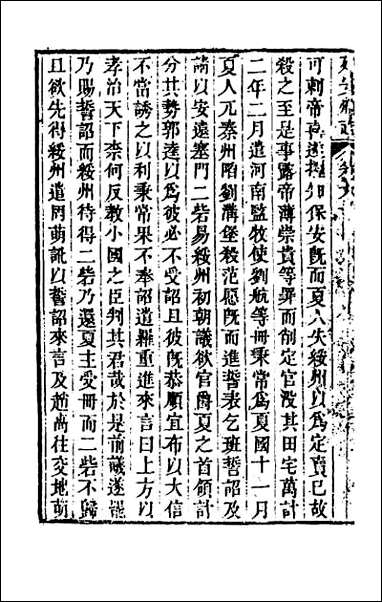 可刺帝再遂擢知保安旣而夏人失綏州以爲定賣已故
殺之至是事露帝薄崇貴等罪而削定官没其田宅萬計
二年二月遣河南監牧使劉航等冊秉常爲夏國十一月
夏人兀秦州陷劉溝堡殺范愿旣而進誓表乞班誓詔及
請以安遠塞門二砦易綏州初朝議欲官爵夏之首領計
分其勢郭逵以爲彼必不受詔且彼旣恭順宜布以大信
不當誘之以利秉常果不奉詔遣羅重進來言曰上方以
孝治天下奈何反敎小國之臣判其君哉於是前議遂罷
乃賜誓詔而綏州待得二砦乃還夏主受冊而二砦不歸
且欲先得綏州遣罔萌訛以誓詔來言及趙萬往交地萌